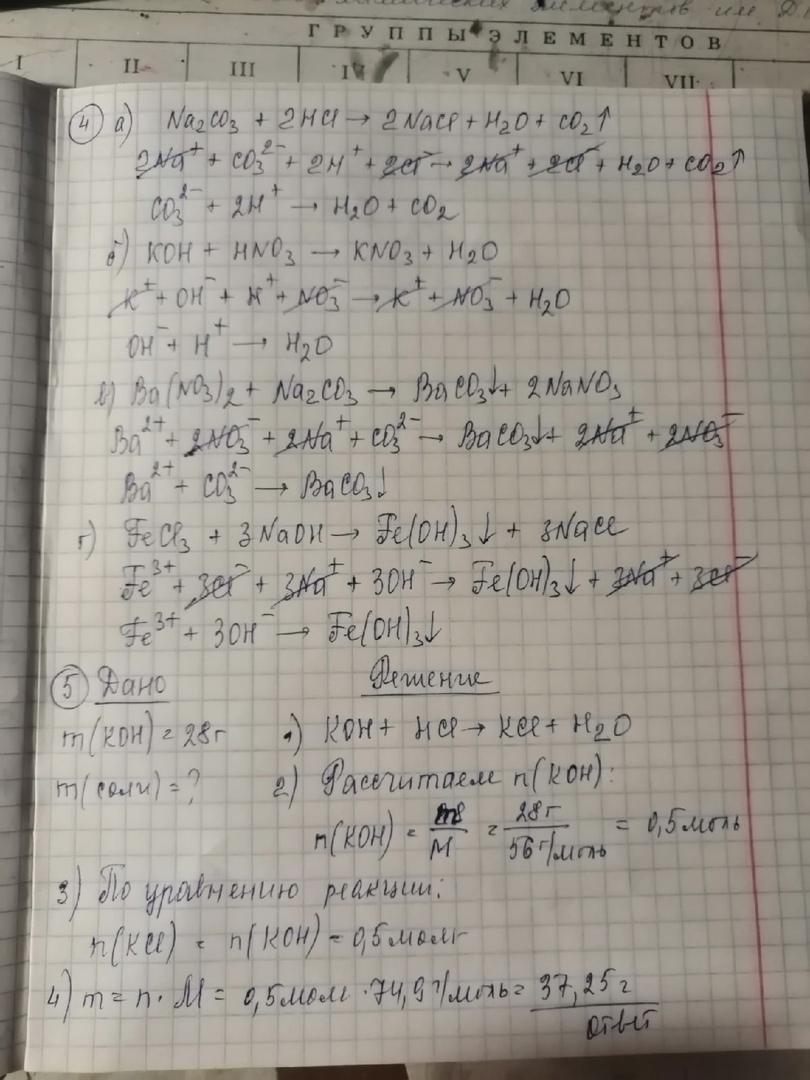 элементов им. Д.
ГРУППЫ ЭЛЕМЕНТОВ
I II III IV V VI VII
4 а) Na2CO3 + 2HCl → 2NaCl + H2O + CO2↑
2Na⁺ + CO3²⁻ + 2H⁺ + 2Cl⁻ → 2Na⁺ + 2Cl⁻ + H2O + CO2↑
CO3²⁻ + 2H⁺ → H2O + CO2
б) KOH + HNO3 → KNO3 + H2O
K⁺ + OH⁻ + H⁺ + NO3⁻ → K⁺ + NO3⁻ + H2O
OH⁻ + H⁺ → H2O
в) Ba(NO3)2 + Na2CO3 → BaCO3↓ + 2NaNO3
Ba²⁺ + 2NO3⁻ + 2Na⁺ + CO3²⁻ → BaCO3↓ + 2Na⁺ + 2NO3⁻
Ba²⁺ + CO3²⁻ → BaCO3↓
г) FeCl3 + 3NaOH → Fe(OH)3↓ + 3NaCl
Fe³⁺ + 3Cl⁻ + 3Na⁺ + 3OH⁻ → Fe(OH)3↓ + 3Na⁺ + 3Cl⁻
Fe³⁺ + 3OH⁻ → Fe(OH)3↓
5 Дано Решение
m(KOH) = 28г 1) KOH + HCl → KCl + H2O
m(соли) = ? 2) Рассчитаем n(KOH):
n(KOH) = m/M = 28г/56г/моль = 0,5моль
3) По уравнению реакции:
n(KCl) = n(KOH) = 0,5моль
4) m = n · M = 0,5моль · 74,9г/моль = 37,25г
ответ